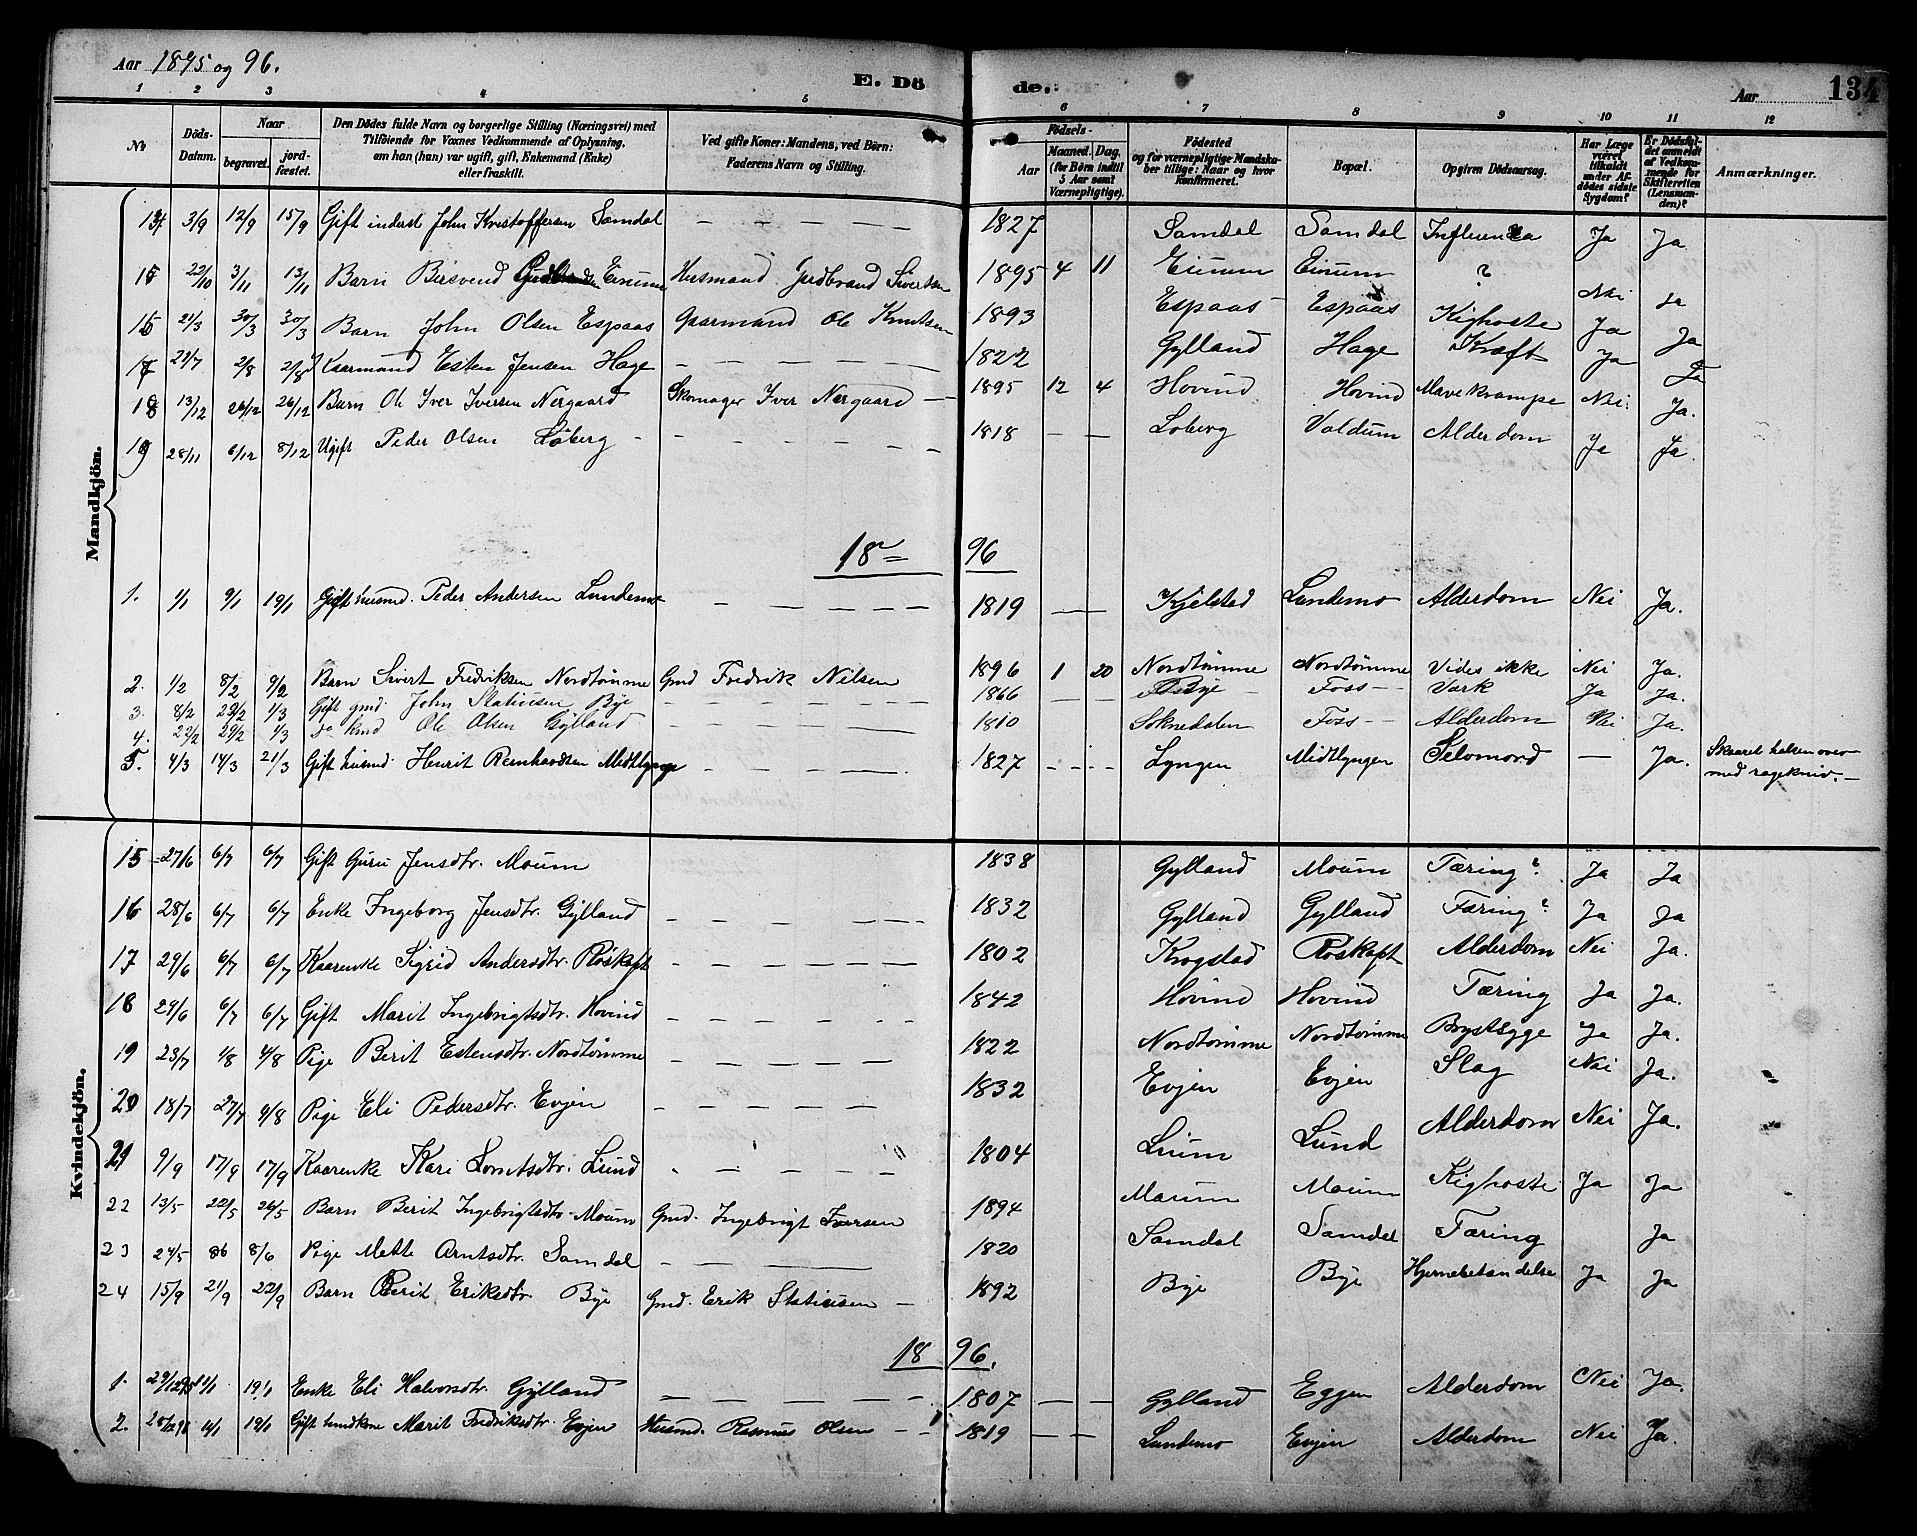 Aar 1895 og 96.
E. Dö de.
Aar
134
1 2 3 4 5 6 7 8 9 10 11 12
No
Döds-Datum.
Naar
begravet.
jord-fæstet.
Den Dödes fulde Navn og borgerlige Stilling (Næringsvei) med Tilföiende for Voxnes Vedkommende af Oplysning, om han (hun) var ugift, gift, Enkemand (Enke) eller fraskilt.
Ved gifte Koner: Mandens, ved Börn: Faderens Navn og Stilling.
Födsels-
Aar
Maaned. Dag.
(for Börn indtil 5 Aar samt Værnepligtige).
Födested og for værnepligtige Mandskaber tillige: Naar og hvor konfirmeret.
Bopæl.
Opgiven Dödsaarsag.
Har Læge været tilkaldt under Afdödes sidste Sygdom?
Er Dödsfaldet anmeldt af Vedkommende for Skifteretten (Lensmanden)?
Anmærkninger.
Mandkjön.
14 3/9 12/9 15/9 Gift inderst John Kristoffersen Samdal 1827 Samdal Samdal Influenza Ja Ja
15 22/10 3/11 13/11 Barn Eirum Husmand Gudbrand Sivertsen 1895 4 11 Eirum Eirum ? Nei Ja
16 21/3 30/3 30/3 Barn John Olsen Espaas Gaarmand Ole Knutsen 1893 Espaas Espaas Kighoste Ja Ja
17 2/8 2/8 Kaarmand Esten Jensen Hage 1822 Gylland Hage Kræft Ja Ja
18 13/12 26/12 26/12 Barn Ole Iver Iversen Nergaard Skomager Iver Nergaard 1895 12 4 Hovind Hovind Mavekrampe Nei. Ja.
19 28/11 6/12 8/12 Ugift Peder Olsen Løberg 1818 Løberg Valdum Alderdom Ja Ja
18 96
1. 1/1 9/1 19/1 Gift husmd. Peder Andersen Lundemo 1819 Kjelstad Lundemo Alderdom Nei Ja.
2. 1/2 8/2 9/2 Barn Sivert Fredriksen Nordtømme Gmd Fredrik Nilsen 1896 1 20 Nordtømme Nordtømme Vides ikke Nei Ja.
3. 8/2 23/2 1/3 Gift gmd. John Statiusen Bye 1866 Bye Foss Værk Ja Ja.
4. 22/2 29/2 1/3 do kmd Ole Olsen Gylland 1810 Soknedalen Foss Alderdom Nei Ja.
5. 4/3 14/3 21/3 Gift husmd. Henrik Reinhardsen Midtlyngen 1827 Lyngen Midtlyngen Selvmord — Ja. Skaaret halsen over
med ragekniv.
Kvindekjön.
15 27/6 6/7 6/7 Gift Guru Jensdtr. Moum 1838 Gylland Moum Tæring? Ja Ja
16 28/6 6/7 6/7 Enke Ingeborg Jensdtr. Gylland 1832 Gylland Gylland Tæring? Ja Ja
17 29/6 6/7 6/7 Kaarenke Sigrid Andersdtr. Røskaft 1802 Krogstad Røskaft Alderdom Nei Ja.
18 29/6 6/7 6/7 Gift Marit Ingebrigtsdtr. Hovind 1842 Hovind Hovind Tæring Ja Ja.
19 23/7 1/8 4/8 Pige Berit Estensdtr. Nordtømme 1822 Nordtømme Nordtømme Brystsyge Ja Ja.
20 18/7 27/7 9/8 Pige Eli Pedersdtr. Evjen 1832 Evjen Evjen Slag Nei Ja.
21 9/9 17/9 17/9 Kaarenke Kari Lorntsdtr. Lund 1804 Lium Lund Alderdom Nei Ja.
22 13/5 22/5 26/5 Barn Berit Ingebrigtsdtr. Moum Gmd. Ingebrigt Iversen 1894 Moum Moum Kighoste Ja Ja
23 24/5 8/6 8/6 Pige Mette Arntsdtr. Samdal 1820 Samdal Samdal Tæring Ja
24 15/9 21/9 22/9 Barn Berit Eriksdtr. Bye Gmd. Erik Statiusen 1892 Bye Bye Hjernebetændelse Ja Ja
18 96.
1. 11/1 19/1 Enke Eli Halvorsdtr. Gylland 1807 Gylland Eggen Alderdom Nei Ja.
2. 11/1 19/1 Gift husmdkone Marit Fredriksdtr. Evjen Husmd. Rasmus Olsen 1819 Lundemo Evjen Alderdom Nei Ja.